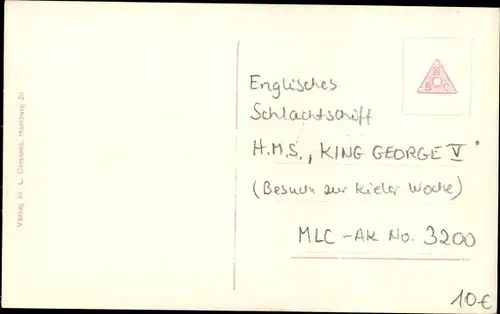 Englisches
Schlachtschiff
H.M.S. "KING GEORGE V"
(Besuch zur Kieler Woche)
MLC-AK No. 3200
10€
N
B C
Verlag M. L. Carstens, Hamburg 20